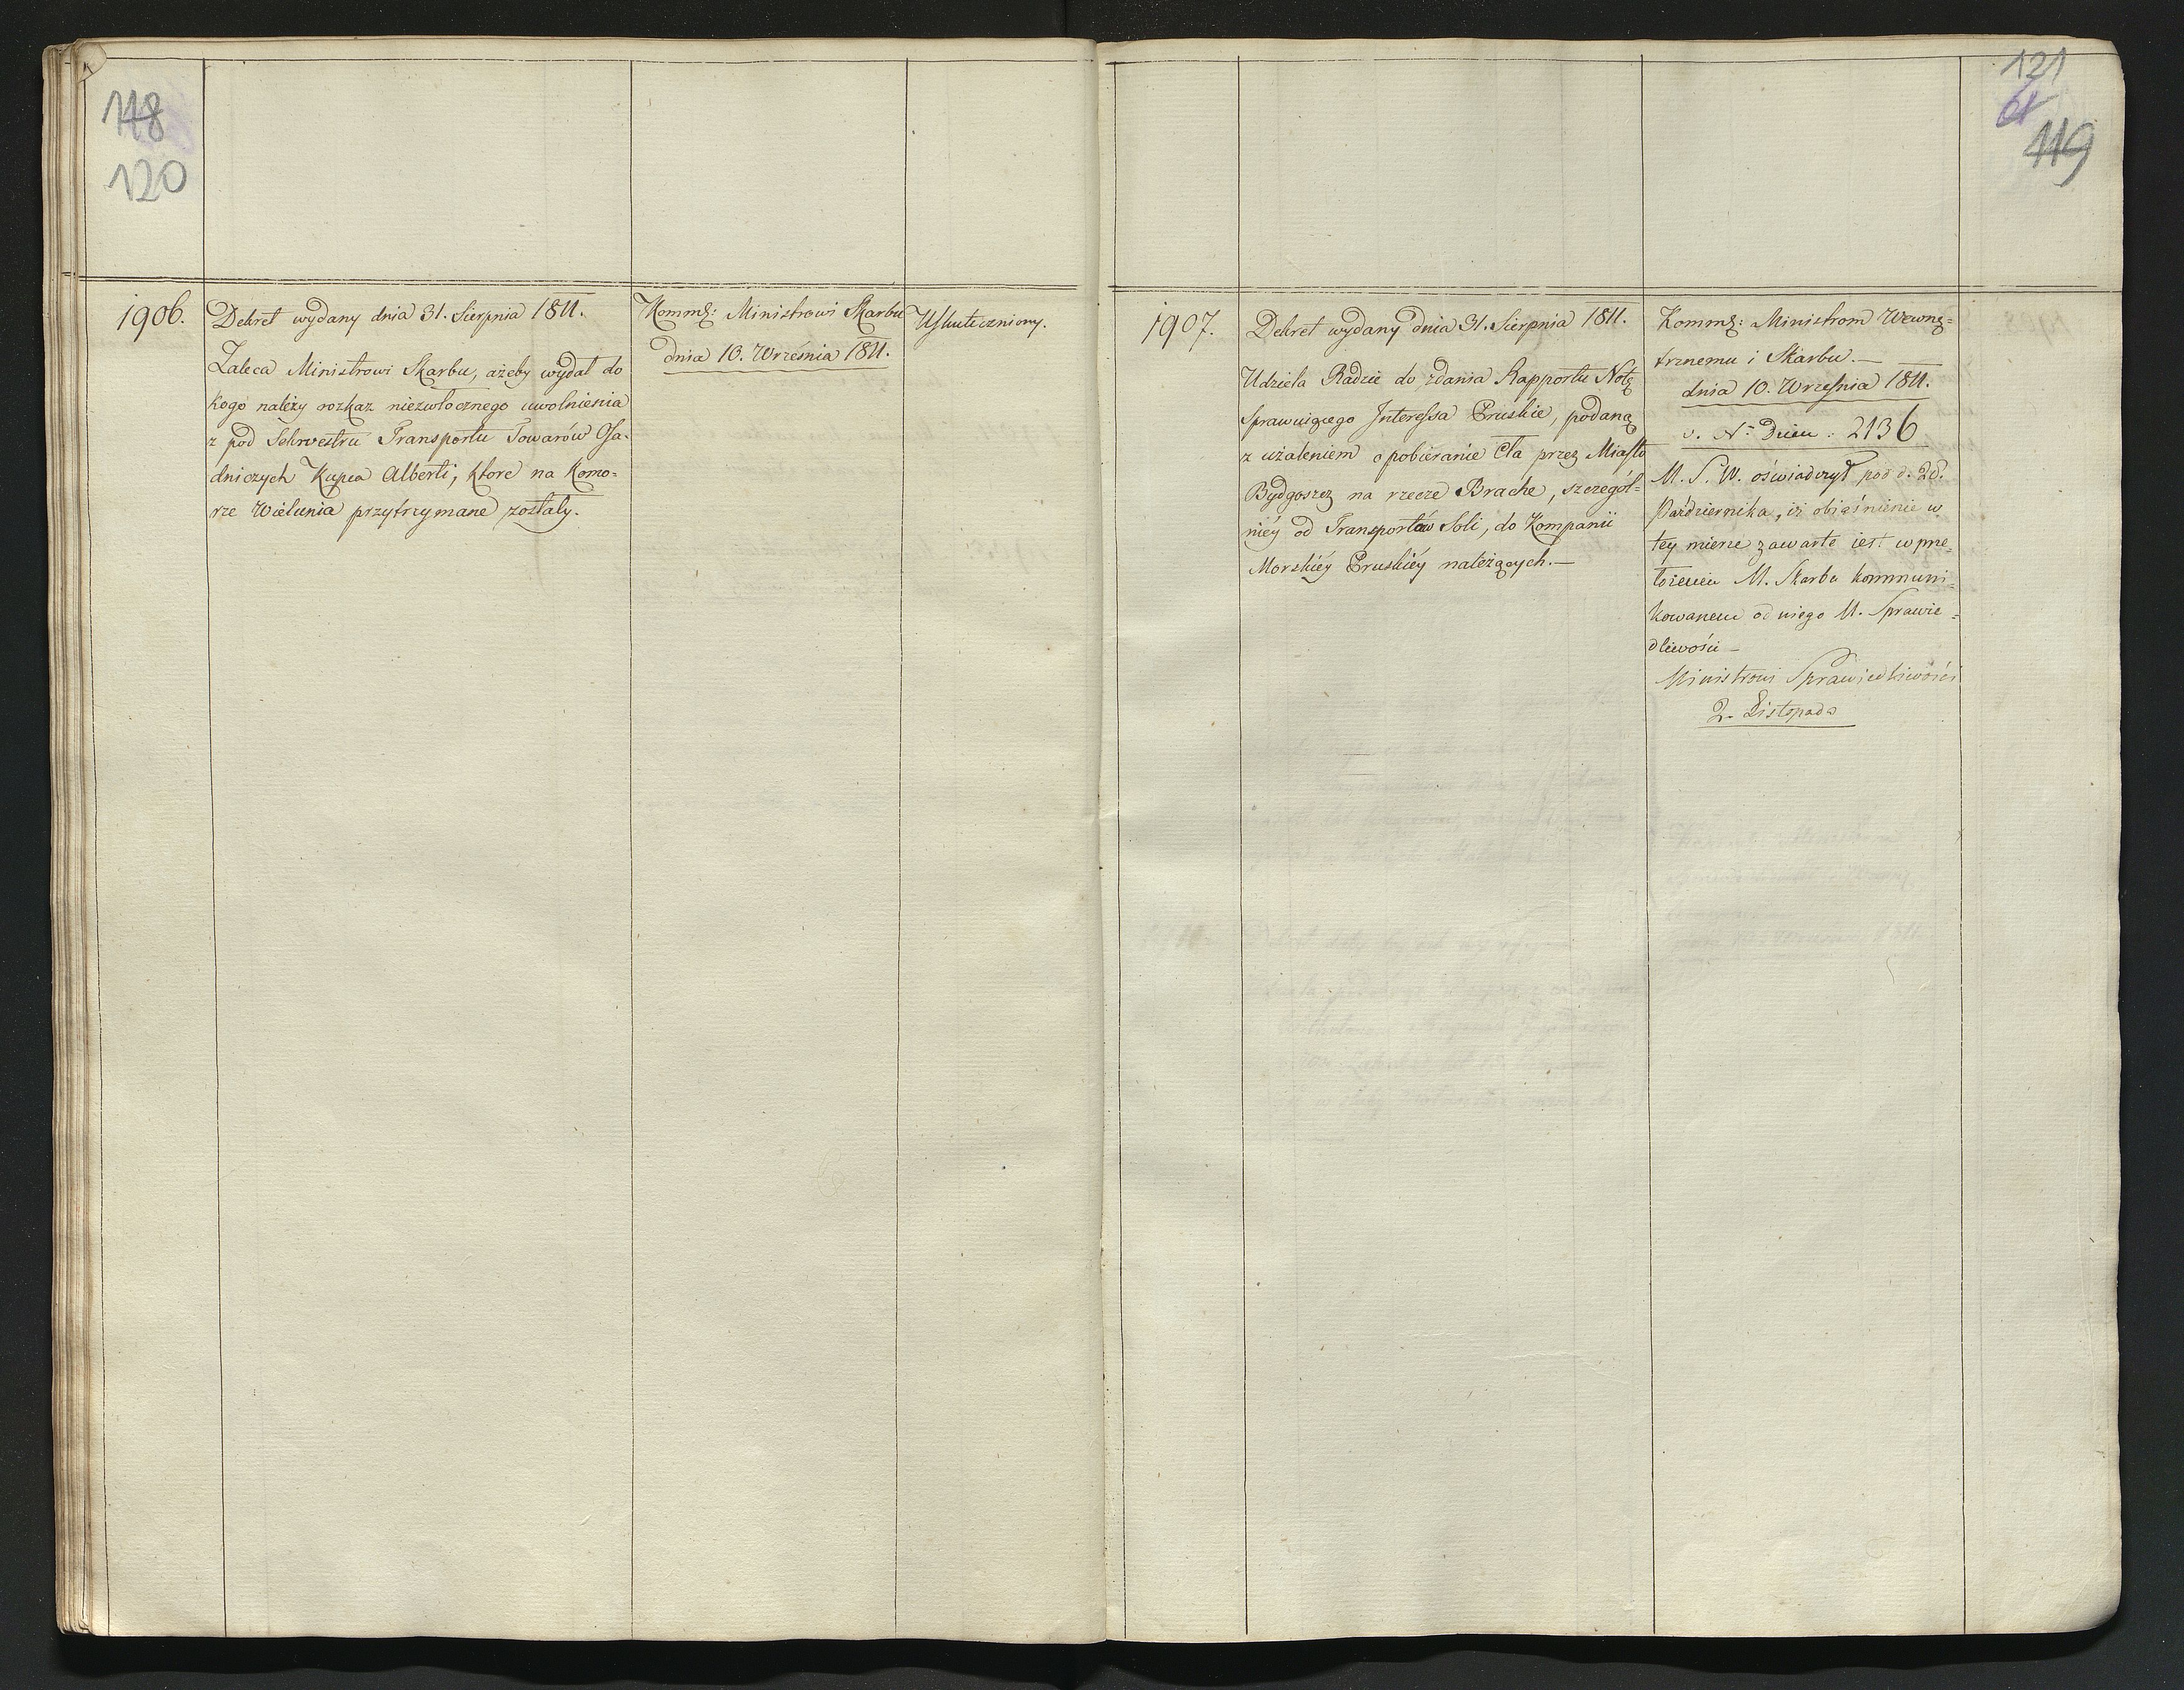 118
120
1906.
Dekret wydany dnia 31. Sierpnia 1811.
Zaleca Ministrowi Skarbu, ażeby wydał do
kogo należy rozkaz niezwłocznego uwolnienia
z pod Sekwestru Transportu Towarów Osa-
dniczych Kupca Alberti, ktore na Komo-
rze Wielunia przytrzymane zostały.
Kommũ: Ministrowi Skarbu
dnia 10. Września 1811.
Uskuteczniony.
121
61
119
1907.
Dekret wydany dnia 31. Sierpnia 1811.
Udziela Radzie do zdania Rapportu Notę
Sprawuiącego Interessa Pruskie, podaną
z użaleniem o pobiéranie Cła przez Miasto
Bydgoszcz na rzece Brache, szczegól-
niéy od Transportów Soli, do Kompanii
Morskiéy Pruskiéy należących.—
Kommũ: Ministrom Wewnę-
trznemu i Skarbu.—
dnia 10. Września 1811.
v. Nº Dzien: 2136
M. S. W. oświadczył pod d. 28.
Października, iż obiaśnienie w
tey mierze zawarte iest w prze-
łożeniu M. Skarbu kommuni-
kowanem od niego M. Sprawie-
dliwości —
Ministrowi Sprawiedliwości
2. Listopada